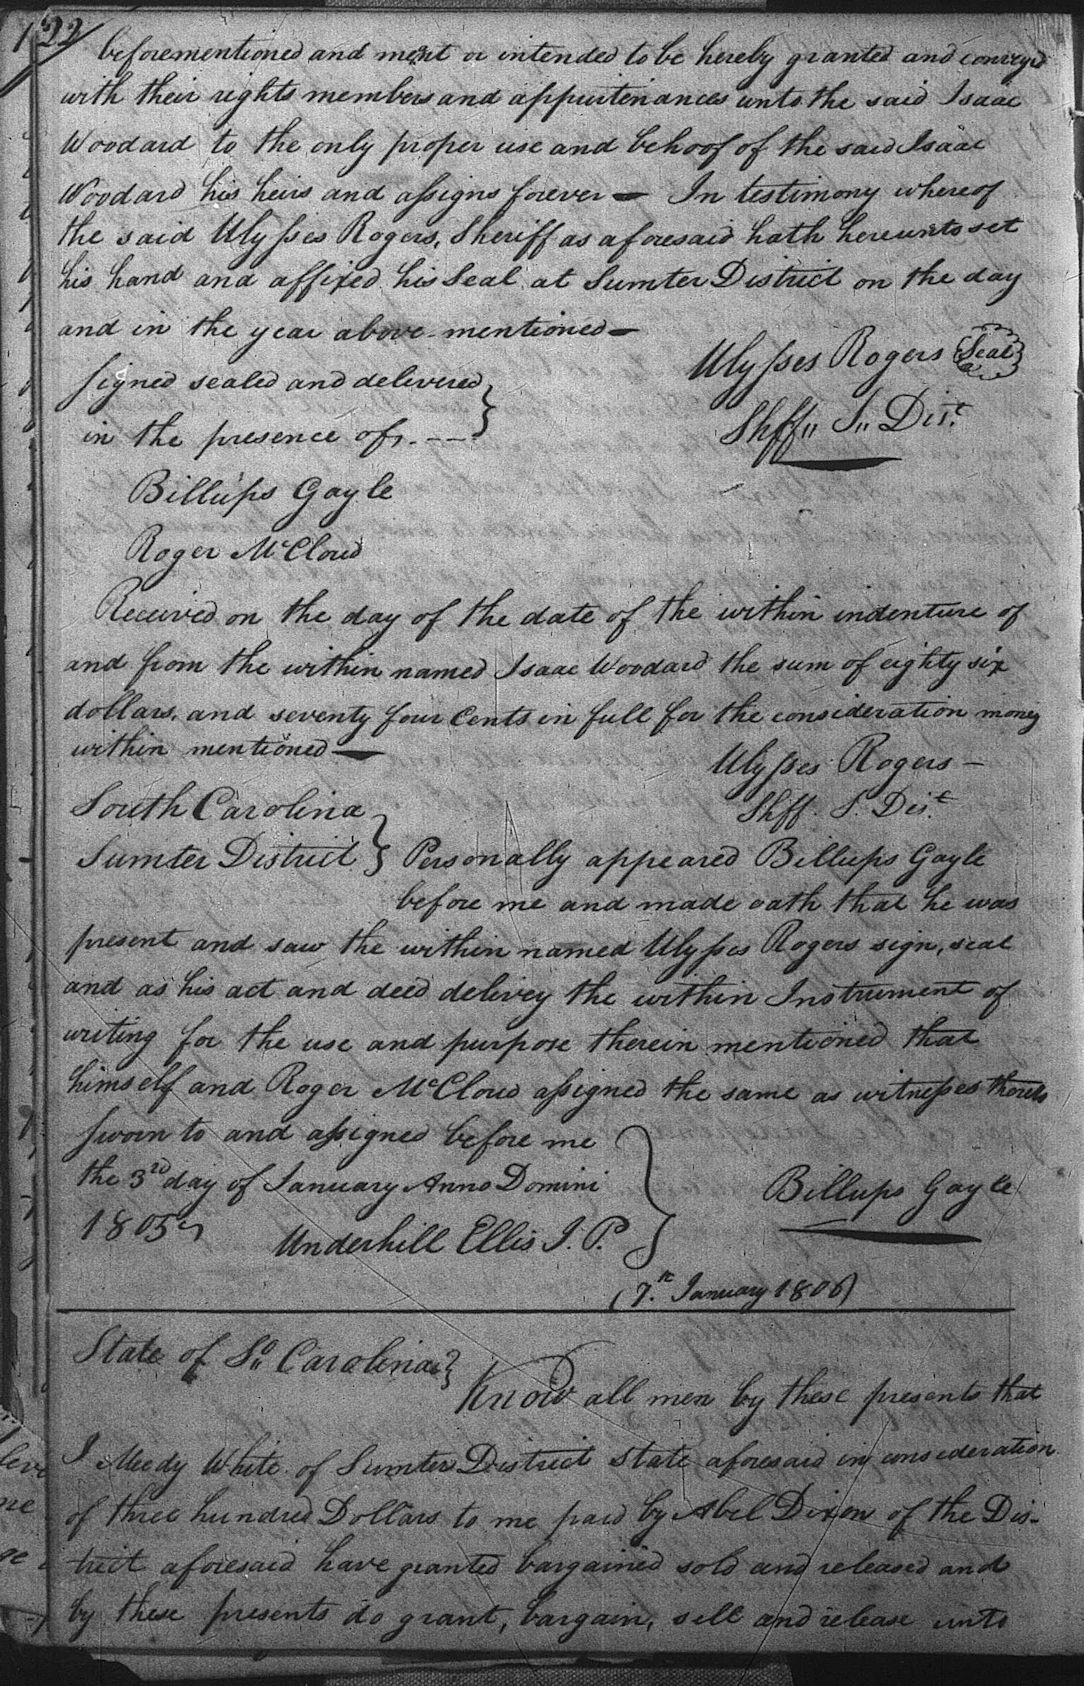 122
beforementioned and ment or intended to be hereby granted and conveyd
with their rights members and appurtenances unto the said Isaac
Woodard to the only proper use and behoof of the said Isaac
Woodard his heirs and assigns forever — In testimony whereof
the said Ulysses Rogers, Sheriff as aforesaid hath hereunto set
his hand and affixed his Seal at Sumter District on the day
and in the year above mentioned —
Ulysses Rogers Seal
Signed sealed and delivered
in the presence of
Shff. S. Dist.
Billups Gayle
Roger McCloud
Received on the day of the date of the within indenture of
and from the within named Isaac Woodard the sum of eighty six
dollars, and seventy four Cents in full for the consideration money
within mentioned —
Ulysses Rogers —
Shff. S. Dist.
South Carolina
Sumter District } Personally appeared Billups Gayle
before me and made oath that he was
present and saw the within named Ulysses Rogers sign, seal
and as his act and deed delivey the within Instrument of
writing for the use and purpose therein mentioned that
himself and Roger McCloud assigned the same as witnesses thereto
Sworn to and assigned before me
the 3rd day of January Anno Domini
1805
Billups Gayle
Underhill Ellis J. P.
(7th January 1806)
State of So. Carolina }
Know all men by these presents that
I Meedy White of Sumter District State aforesaid in consideration
of three hundred Dollars to me paid by Abel Dixon of the Dis-
trict aforesaid have granted bargained sold and released and
by these presents do grant, bargain, sell and release unto